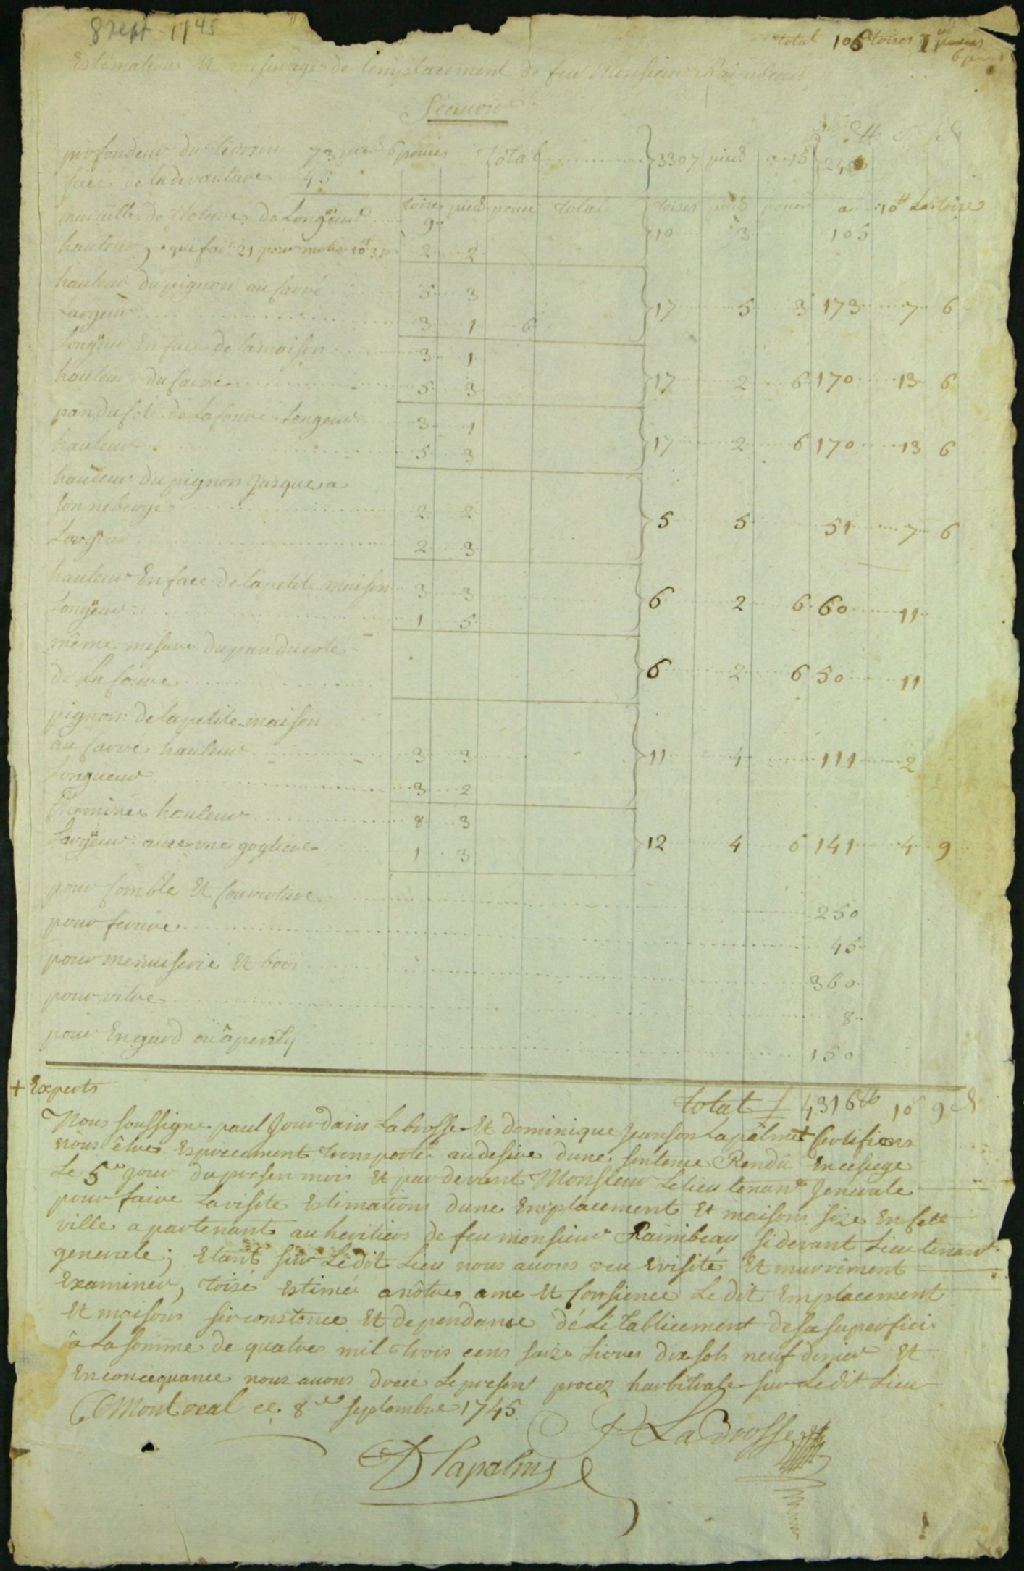 8 Sept 1745
total 106 toises 1
Estimation Et mesurage de lemplacement de feu Monsieur Raimbeau
Scavoir
profondeur du terrain 73 pieds 6 pouces total 3307 pieds a 15
face de la devanture 45
muraille de Cloture de Longueur toises pieds pouces total toises pieds pouces a 10 La toise
9
hauteur, 2 2 10 3 105
hauteur du pignon au carré 5 3 17 5 3 173 7 6
Largeur 3 1 6
longueur En face de la maison 3 1
hauteur du carré 5 3 17 2 6 170 13 6
pan du coté de La Cour Longeur 3 1
hauteur 5 3 17 2 6 170 13 6
hauteur du pignon jusque a
2 2 5 5 51 7 6
Largeur 2 3
hauteur En face de la petite maison 3 3 6 2 6 60 11
Longueur 1 5
même mesure du pan du coté
de La Cour 6 2 6 50 11
pignon de la petite maison
au carré hauteur 3 3 11 1 111 2
Longueur 3 2
Cheminée hauteur 8 3
Largeur avec une 1 3 12 4 6 141 4 9
pour comble Et Couverture 250
pour ferrure 45
pour menuiserie Et bois 360
pour vitre 8
pour Engard ou apenty 150
+ Experts
total 4316 10 9
Nous soussigne paul Jourdain Labrosse Et dominique Janson Lapalme + Certifions
nous être Expressement transporté au desire dune sentence Rendu En ce siege
Le 5e jour du presen mois Et par devant Monsieur Le lieu tenant generale
pour faire La visite Estimations dune Emplacement Et maisons size En cette
ville apartenant au heritiers de feu monsieur Raimbeau si devant Lieu tenant
generale; Etant sur Ledit Lieu nous avons veu Evisité Et murement
Examiner, toise Estimée a nôtre ame Et Consience Le dit Emplacement
Et maisons sirconstence Et dependance de Letablicement de sa superficie
à La somme de quatre mil trois cens saize Livres dix sols neuf denier Et
En concequance nous avons dresse Le present procez harbitrale sur Le dit Lieu
A Montreal ce 8e septembre 1745
P Labrosse
D Lapalme